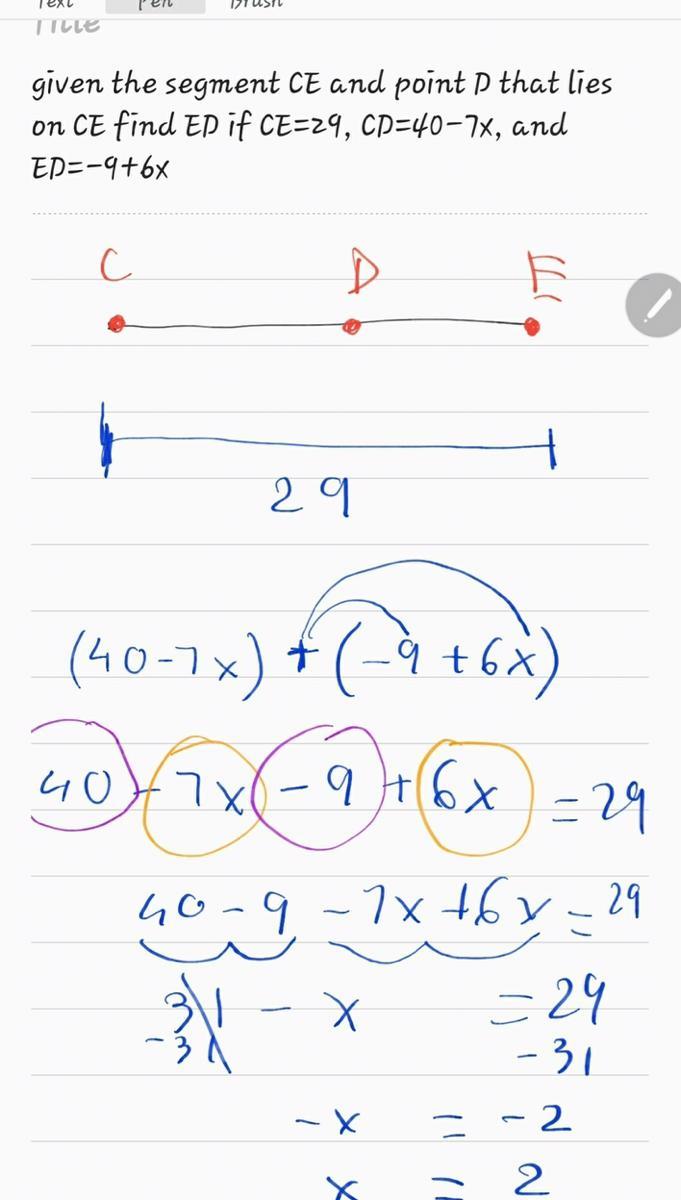 Text Pen Brush
Title
given the segment CE and point D that lies
on CE find ED if CE=29, CD=40-7x, and
ED=-9+6x
C D E
29
(40-7x) + (-9 +6x)
40 -7x -9 +6x = 29
40 -9 -7x +6x = 29
31 - x = 29
-31 -31
-x = -2
x = 2